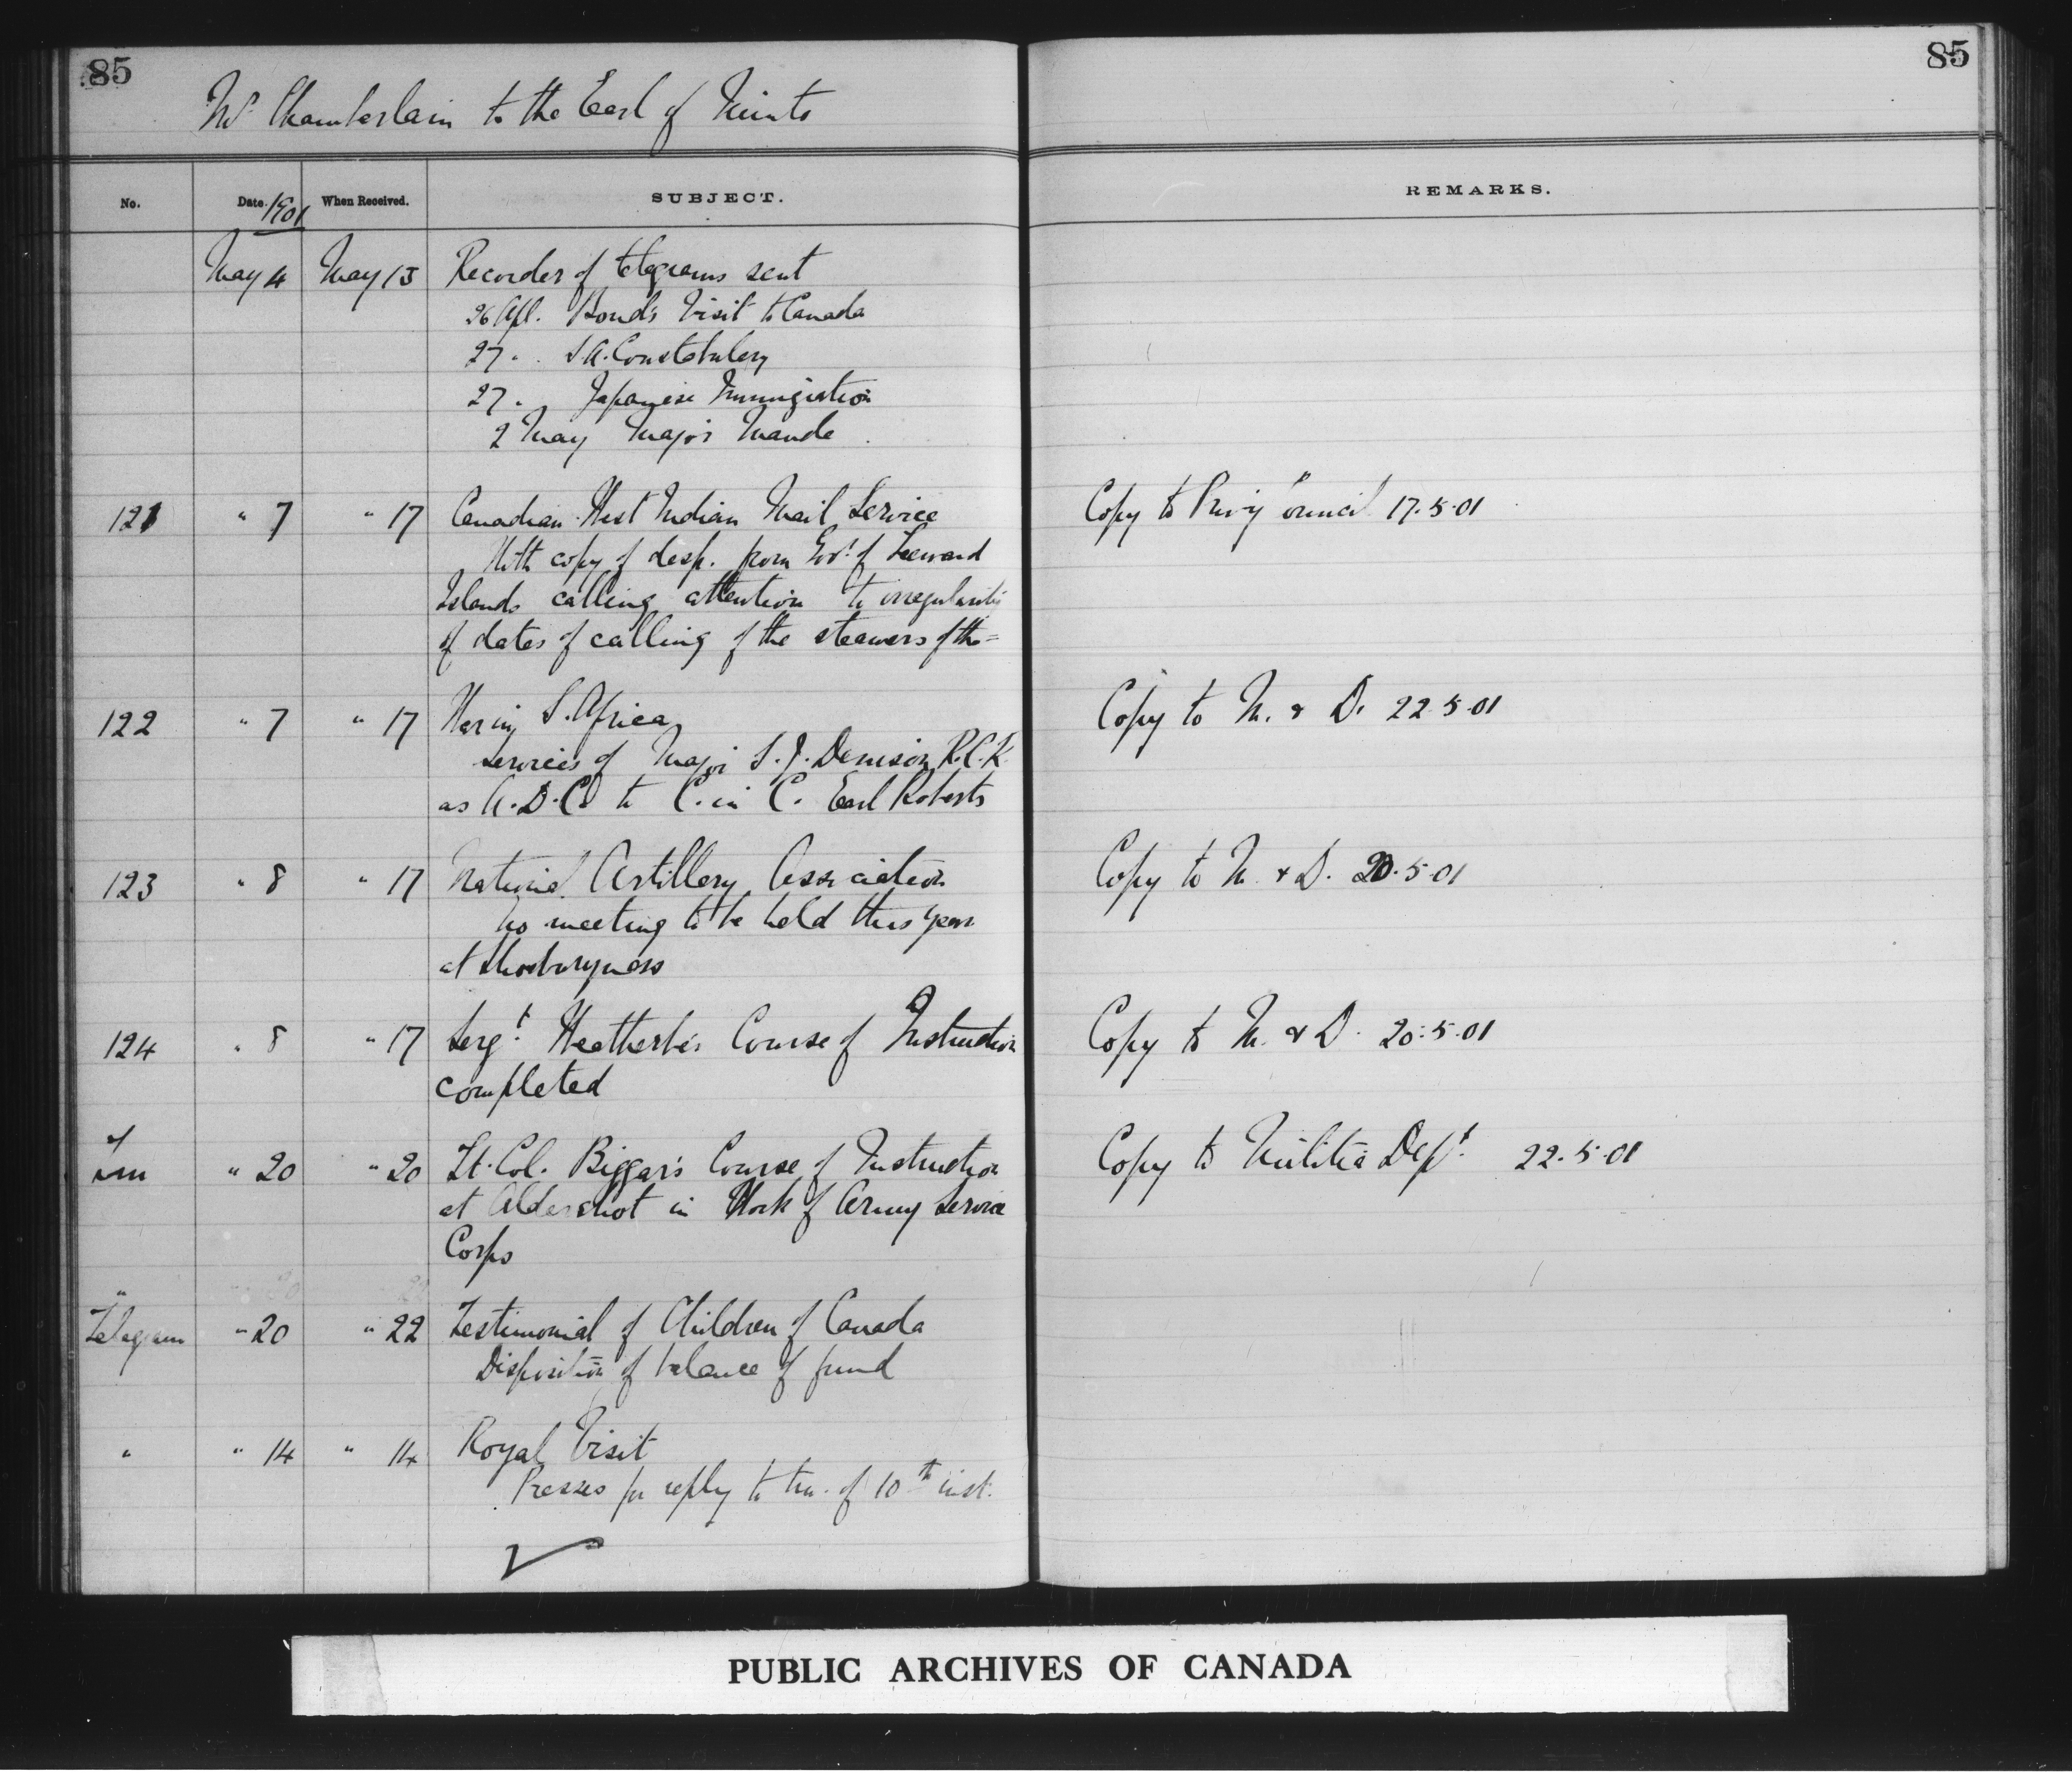 85
85
Mr Chamberlain to the Earl of Minto
No. Date. 1901 When Received. SUBJECT. REMARKS.
May 4 May 13 Recorder of telegrams sent
26 Apl. Bond's Visit to Canada
27 " S.A. Constabulary
27 " Japanese Immigration
2 May Major Maude
121 " 7 " 17 Canadian-West Indian Mail Service Copy to Privy Council 17.5.01
With copy of desp. from Govr of Leeward
Islands calling attention to irregularity
of dates of calling of the steamers of the=
122 " 7 " 17 War in S. Africa Copy to M. & D. 22.5.01
services of Major S.J. Denison R.C.R.
as A.D.C. to C. in C. Earl Roberts
123 " 8 " 17 National Artillery Association Copy to M. & D. 20.5.01
No meeting to be held this year
at Shoeburyness
124 " 8 " 17 Sergt Weatherbe's Course of Instruction Copy to M. & D. 20.5.01
completed
" 20 " 20 Lt. Col. Biggar's Course of Instruction Copy to Militia Dept 22.5.01
at Aldershot in Work of Army Service
Corps
Telegram " 20 " 22 Testimonial of Children of Canada
Disposition of balance of fund
" " 14 " 14 Royal Visit
Presses for reply to tm. of 10th inst.
PUBLIC ARCHIVES OF CANADA